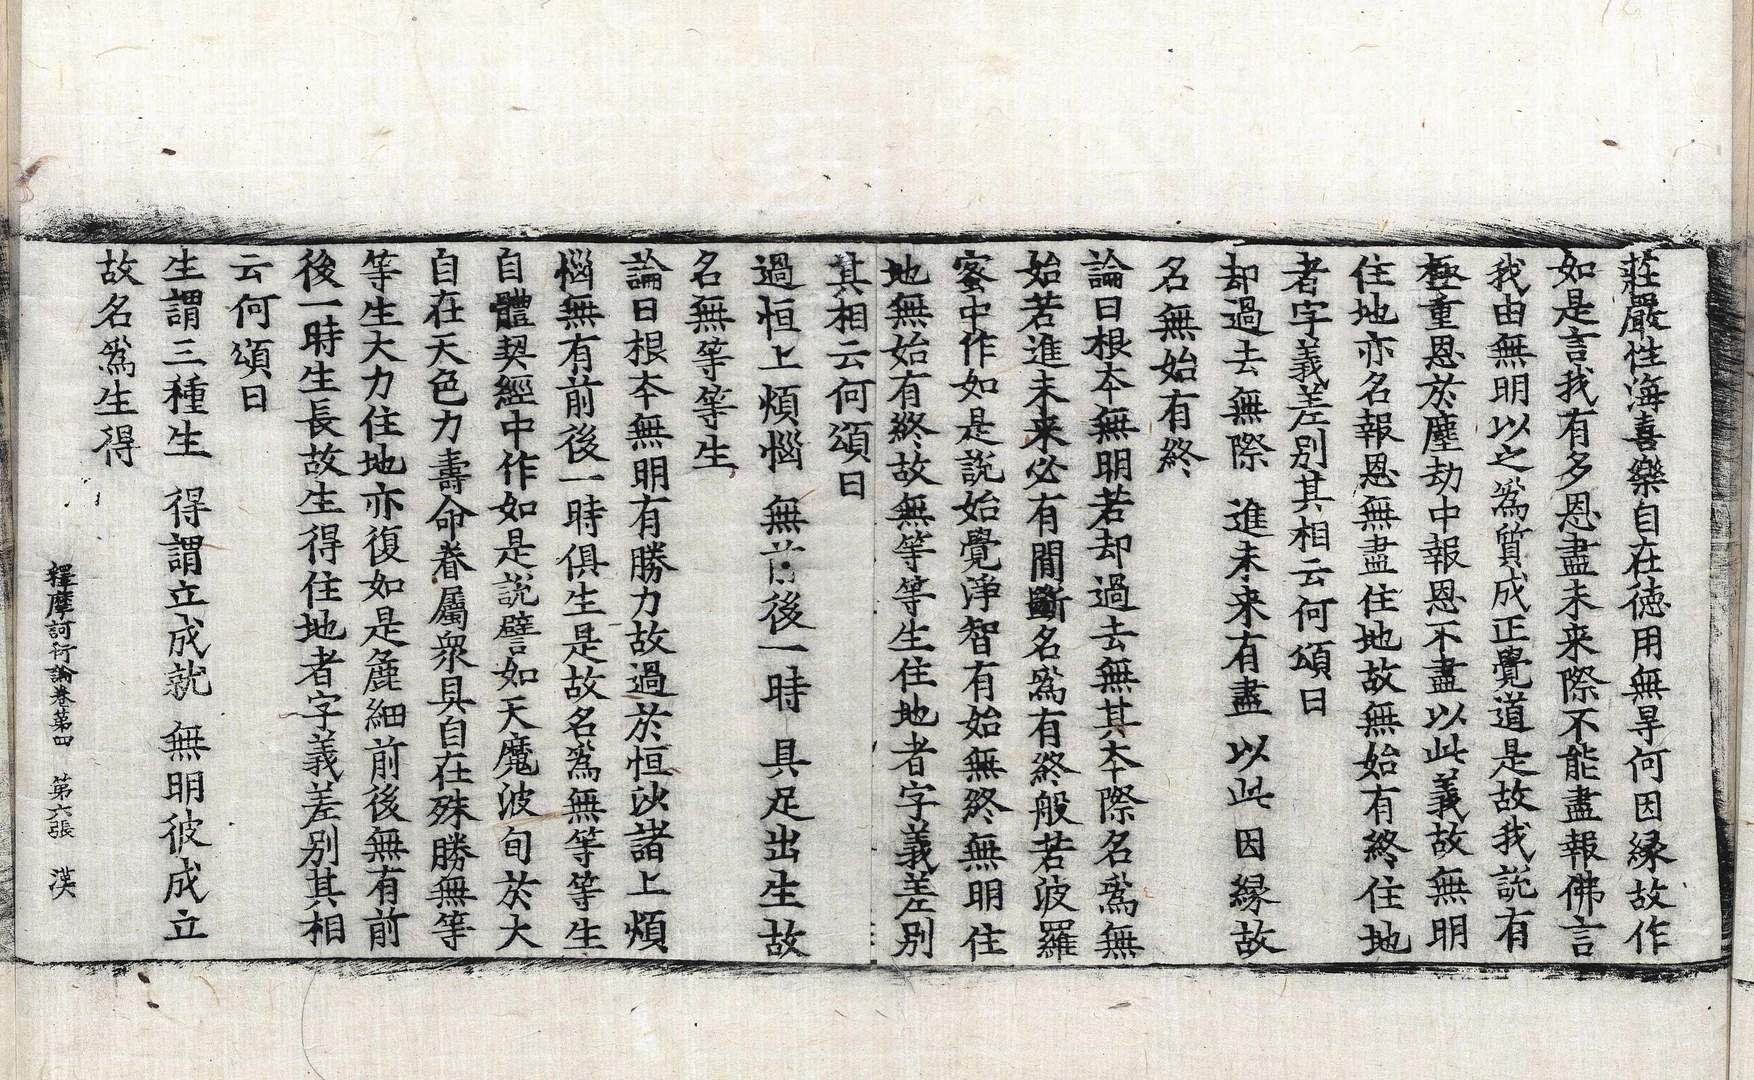 莊嚴性海喜樂自在徳用無㝵何因縁故作
如是言我有多恩盡未来際不能盡報佛言
我由無明以之爲質成正覺道是故我説有
極重恩於塵劫中報恩不盡以此義故無明
住地亦名報恩無盡住地故無始有終住地
者字義差别其相云何頌曰
却過去無際 進未来有盡 以此因縁故
名無始有終
論曰根本無明若却過去無其本際名爲無
始若進未来必有間斷名爲有終般若波羅
蜜中作如是説始覺淨智有始無終無明住
地無始有終故無等等生住地者字義差别
其相云何頌曰
過恒上煩惱 無前後一時 具足出生故
名無等等生
論曰根本無明有勝力故過於恒沙諸上煩
惱無有前後一時俱生是故名爲無等等生
自體契經中作如是説譬如天魔波旬於大
自在天色力壽命眷屬衆具自在殊勝無等
等生大力住地亦復如是麁細前後無有前
後一時生長故生得住地者字義差别其相
云何頌曰
生謂三種生 得謂立成就 無明彼成立
故名爲生得
釋摩訶衍論卷第四 第六張 漢